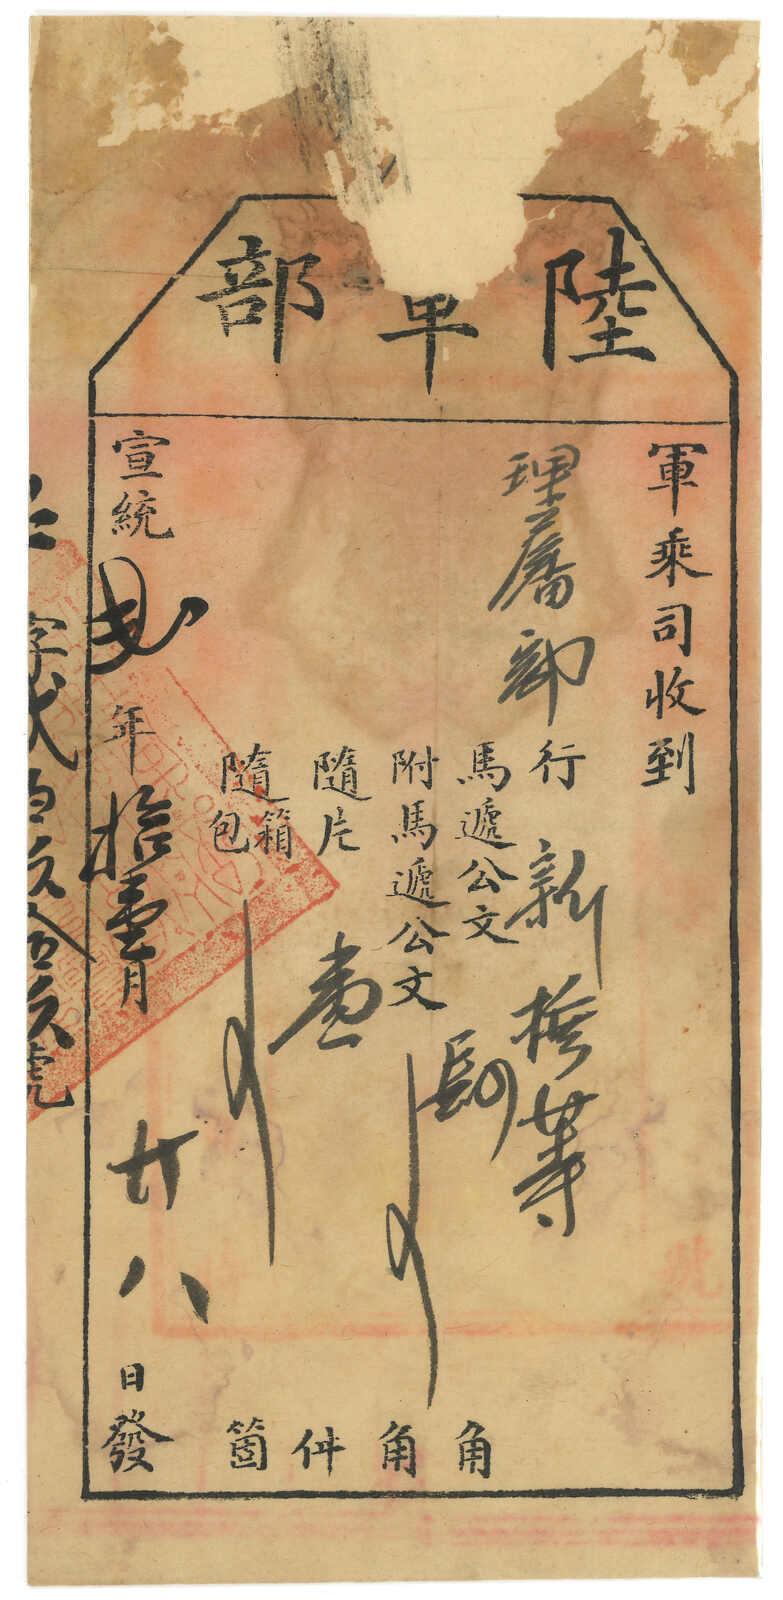 陸軍部
軍乘司收到
理藩部行新撫等
馬遞公文肆角
附馬遞公文角
隨片壹件
隨箱包箇
宣統貳年拾壹月廿八日發
字貳百玖拾玖號